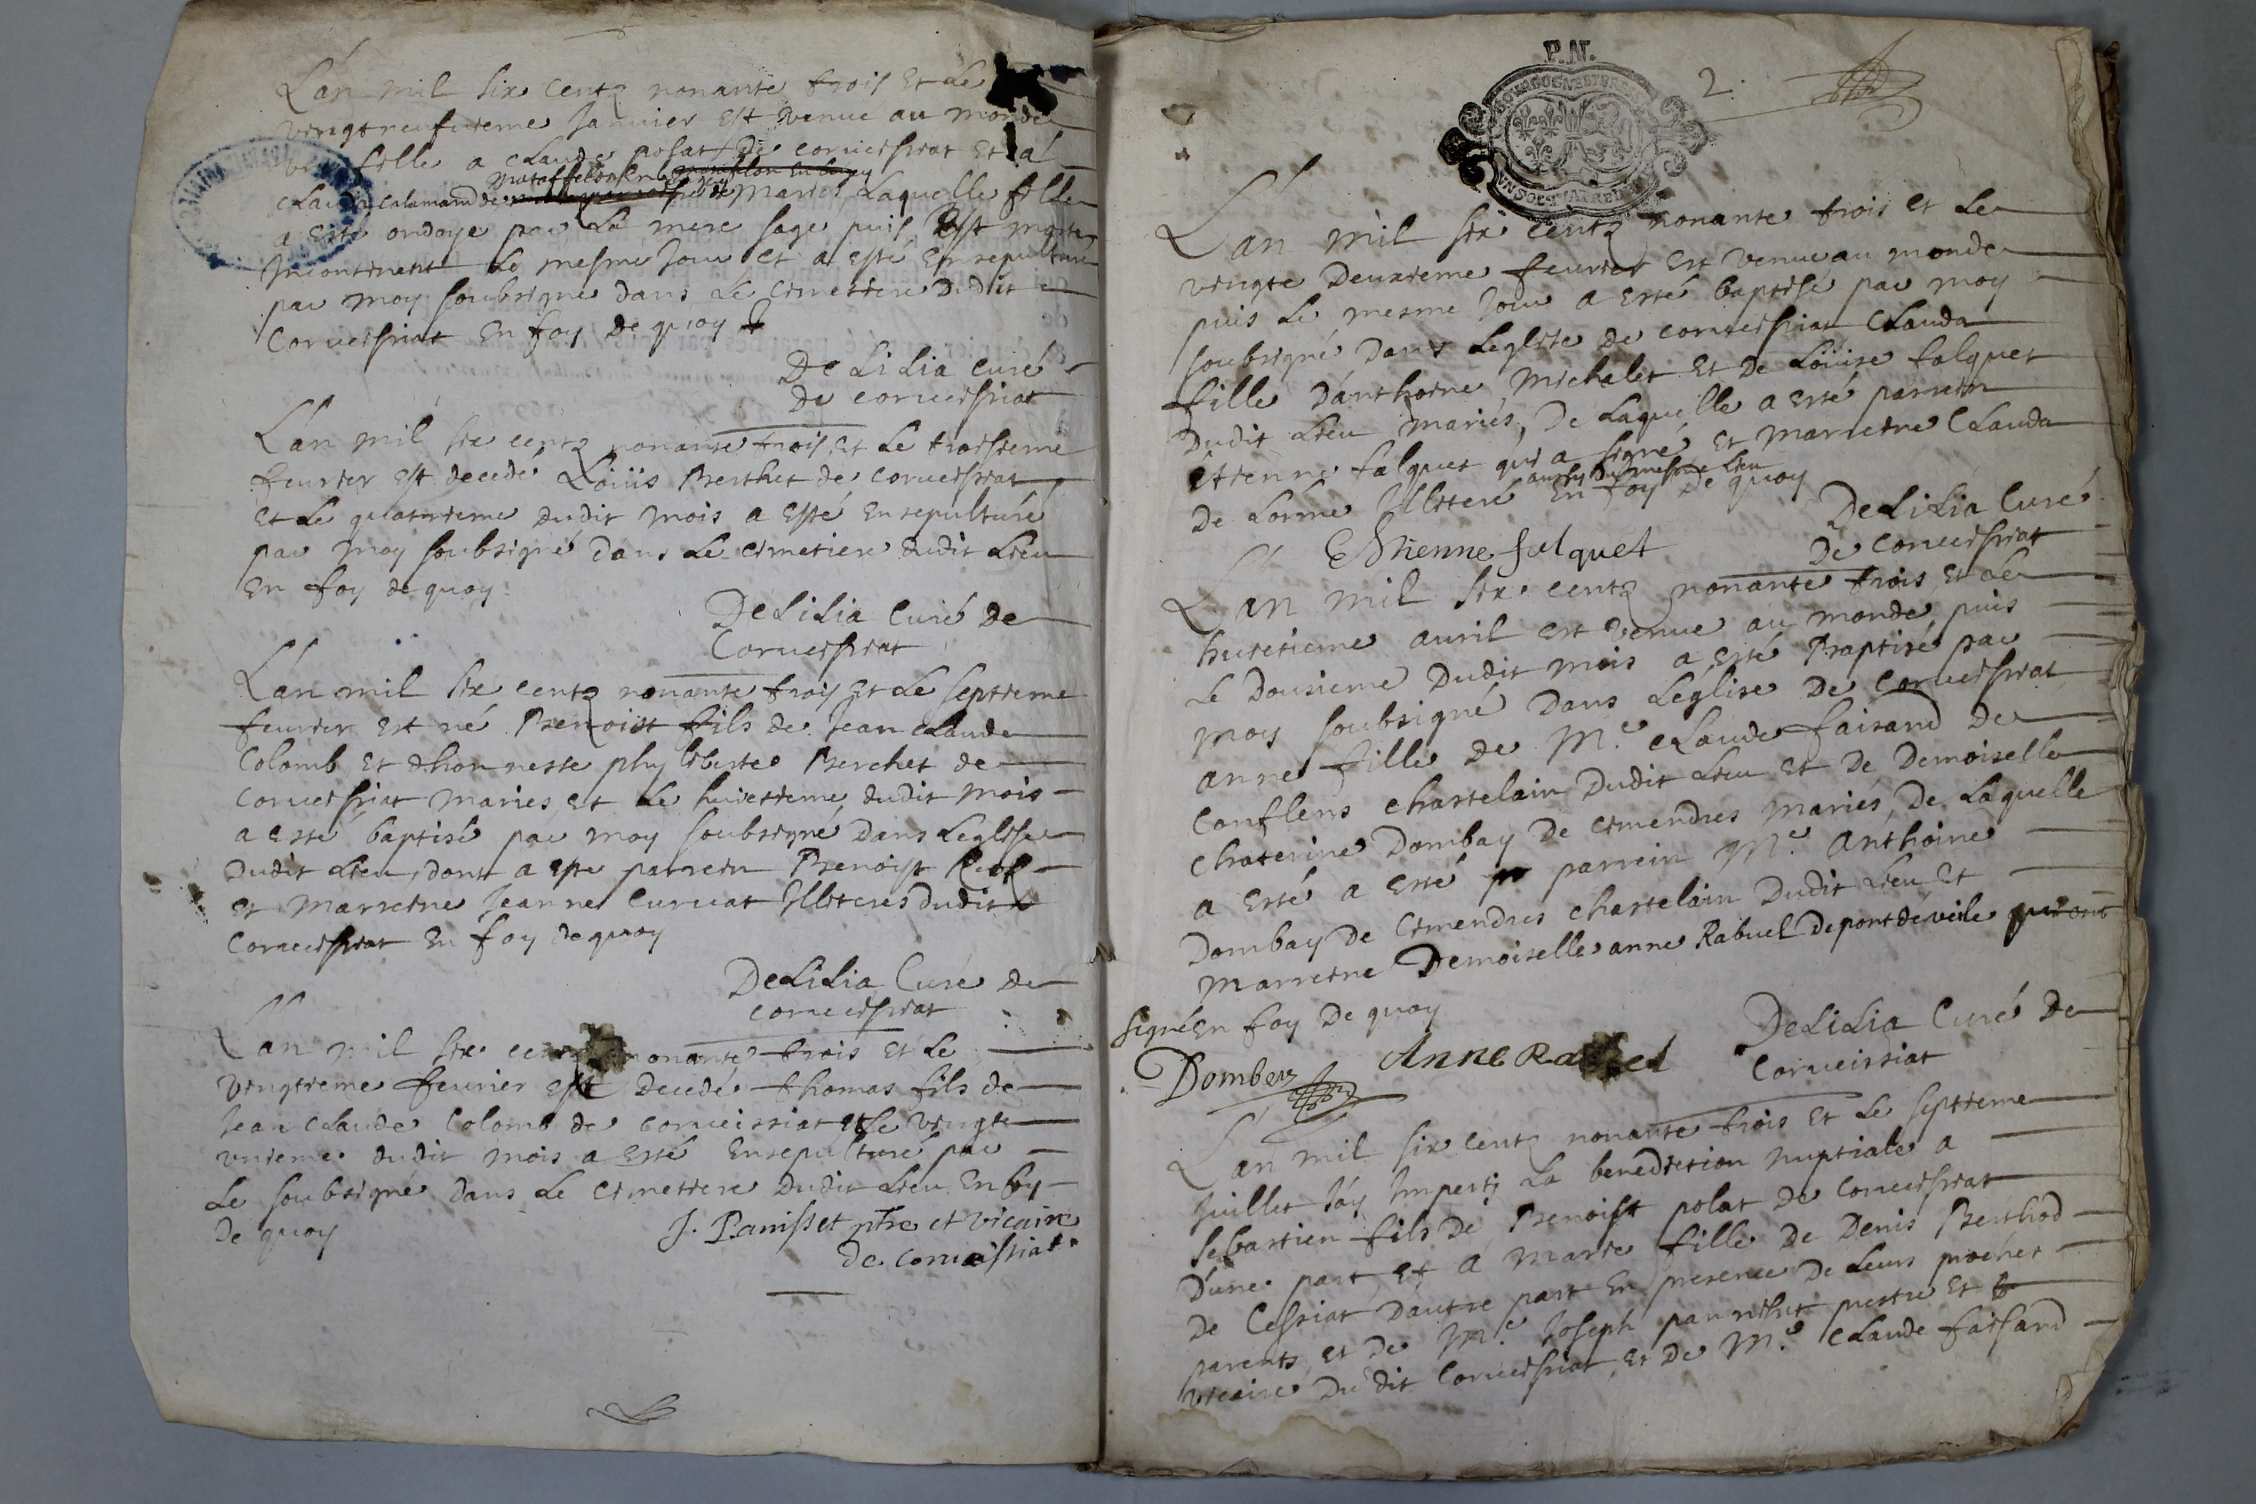 L'an mil six centz nonante trois et le
vingtneufvieme Janvier est venue au monde
une fille a Claude polat de Corveissiat et a
Clauda Calamand de Mariés Laquelle fille
a esté ondoyé par La mere sage puis est morte
incontinent Le mesme Jour et a esté ensepulturé
par moy soubsigné dans Le cimetiere dudit
Corveissiat En foy de quoy
DeLiLia Curé
de Corveissiat
L'an mil six centz nonante trois et Le troisieme
feuvrier est decedé Loüis Berthet de Corveissiat
et Le quatrieme dudit mois a esté ensepulturé
par moy soubsigné dans Le cimetiere dudit Lieu
En foy de quoy
DeLiLia Curé de
Corveissiat
L'an mil six centz nonante trois et Le septieme
feuvrier est né Benoist fils de Jean Claude
Colomb et d'honneste phyliberte Berchet de
Corveissiat mariés et Le huictieme dudit mois
a esté baptisé par moy soubsigné dans Leglise
dudit Lieu, dont a esté parrein Benoist
et marreine Jeanne Curvat Illiterés dudit
Corveissiat En foy de quoy
DeLiLia Curé de
Corveissiat
L'an mil six centz nonante trois et Le
vingtieme feuvrier est decedé thomas fils de
Jean Claude Colomb de Corveissiat et Le vingte
unieme dudit mois a esté ensepulturé par
Le soubsigné dans Le cimetiere dudit Lieu En foy
de quoy
J. Panisset ptre et vicaire
de corveissiat
P.N.
2.
L'an mil six centz nonante trois et Le
vingte deuxieme feuvrier est venue au monde
puis Le mesme Jour a esté baptisé par moy
soubsigné dans Leglise de Corveissiat Clauda
fille d'anthoine Michalet et de Loüise falquet
dudit Lieu mariés, de Laquelle a esté parrein
Etienne falquet qui a signé et marreine Clauda
aussy du mesme Lieu
de Lorme Illiteré En foy de quoy
DeLiLia Curé
de Corveissiat
Estienne falquet
L'an mil six centz nonante trois et Le
huictieme avril est venue au monde, puis
Le douzieme dudit mois a esté Baptisé par
moy soubsigné dans Leglise de Corveissiat
anne fille de M.e Claude faisand de
Conflens Chastelain dudit Lieu et de Demoiselle
Chaterine Dombay de Cimendres mariés, de Laquelle
a esté a esté parrein M.e Anthoine
Dombay de Cimendres Chastelain dudit Lieu et
marreine Demoiselle anne Rabuel de pont de veile qui ont
signé En foy de quoy
DeLiLia Curé de
Corveissiat
Dombey
Anne Rabuel
L'an mil six centz nonante trois et Le septieme
Juillet J'ay Imperti La benediction nuptiale a
sebastien fils de Benoist polat de Corveissiat
d'une part, et a marie fille de Denis Berthod
de Cessiat d'autre part En presence de Leurs proches
parents, et de M.e Joseph pannisset prestre et
vicaire dudit Corveissiat, et de M.e Claude faisand